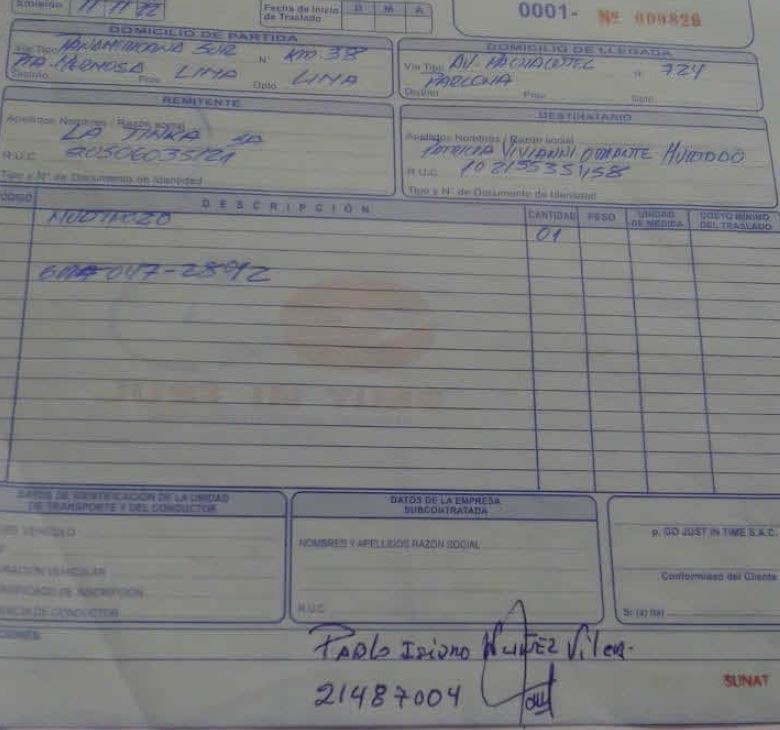 Emisión 11 11 22
Fecha de Inicio de Traslado D M A
0001- Nº 000826
DOMICILIO DE PARTIDA
Vía Tipo PANAMERICANA SUR Nº KM 38
PTA HERMOSA LIMA LIMA
Distrito Prov. Dpto
DOMICILIO DE LLEGADA
Vía Tipo AV. Nº 724
PARCONA
Distrito Prov. Dpto
REMITENTE
Apellidos Nombres / Razón social
LA TINKA SA
R.U.C. 20506035121
Tipo y Nº de Documento de Identidad
DESTINATARIO
Apellidos Nombres / Razón social
PATRICIA VIVIANNI HURTADO
R.U.C. 10215535158
Tipo y Nº de Documento de Identidad
DESCRIPCIÓN
CANTIDAD PESO UNIDAD DE MEDIDA COSTO MÍNIMO DEL TRASLADO
01
047-2892
DATOS DE IDENTIFICACIÓN DE LA UNIDAD
DE TRANSPORTE Y DEL CONDUCTOR
DATOS DE LA EMPRESA
SUBCONTRATADA
NOMBRES Y APELLIDOS RAZON SOCIAL
R.U.C.
p. GO JUST IN TIME S.A.C.
Conformidad del Cliente
Sr. (a) (ta)
PABLO Isidro NUÑEZ Vilca.
21487004
SUNAT